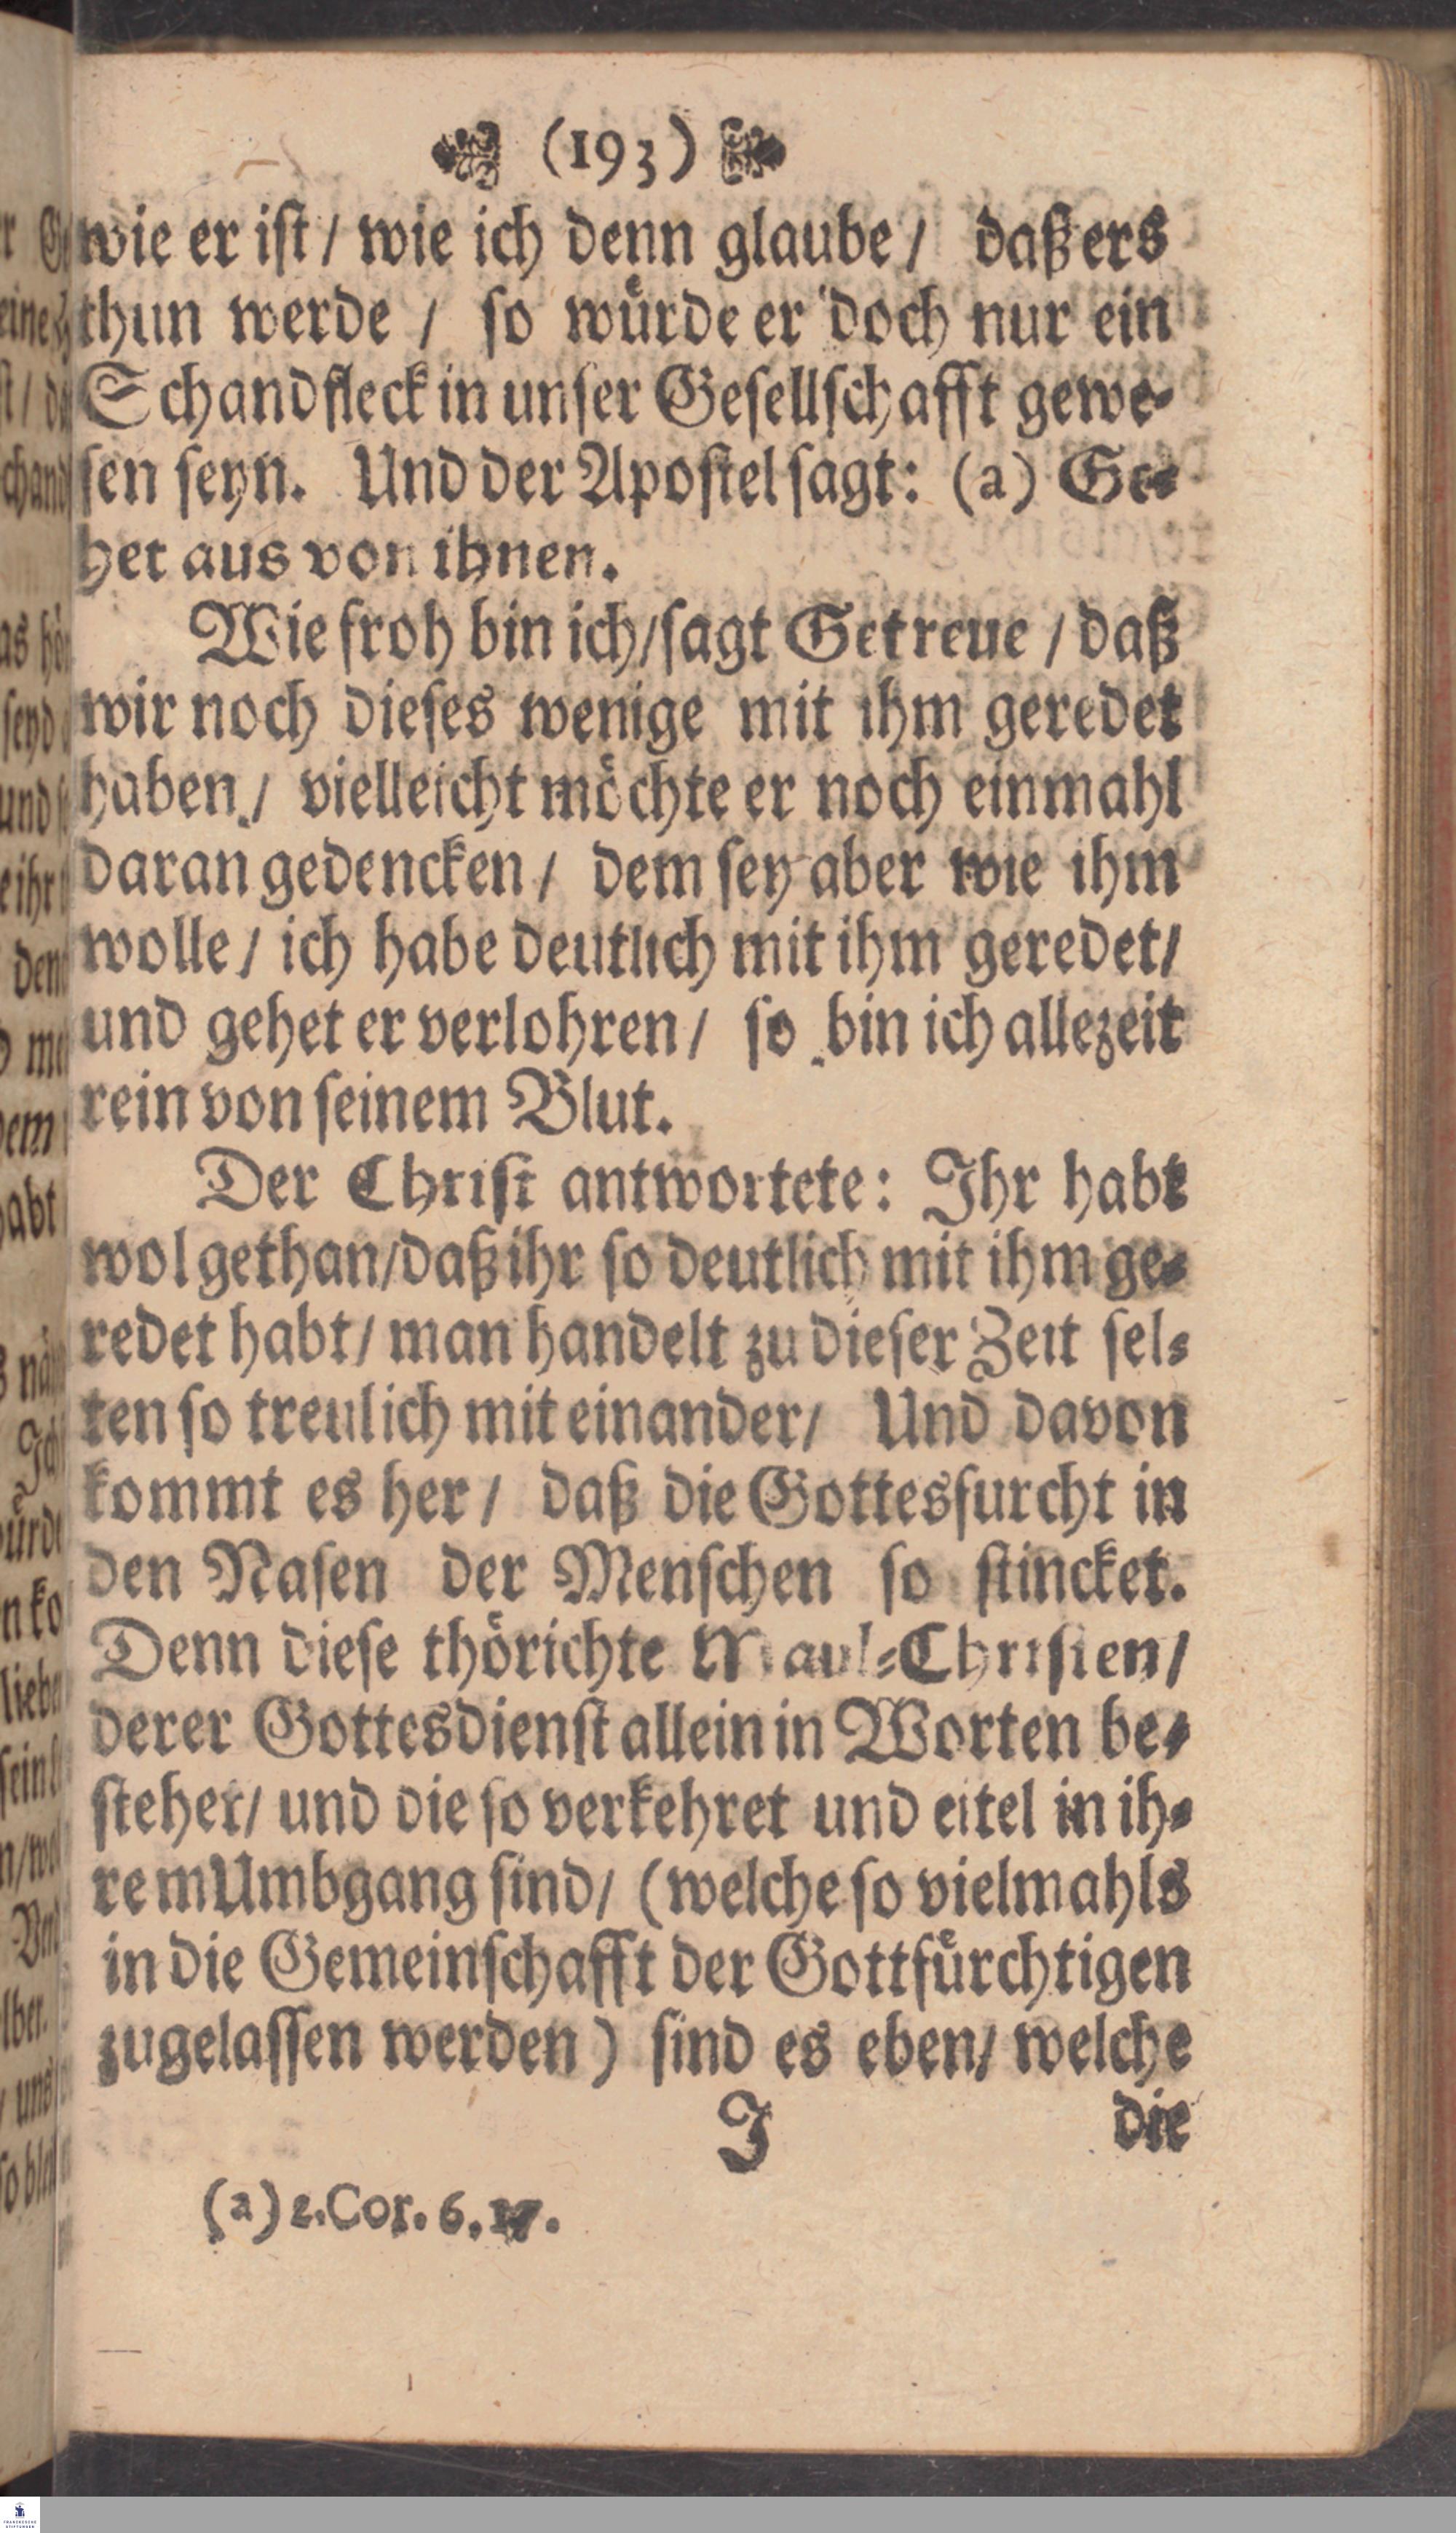 (193)
wie er ist / wie ich denn glaube / daß ers
thun werde / so würde er doch nur ein
Schandfleck in unser Gesellschafft gewe-
sen seyn. Und der Apostel sagt: (a) Ge-
het aus von ihnen.
Wie froh bin ich / sagt Getreue / daß
wir noch dieses wenige mit ihm geredet
haben / vielleicht möchte er noch einmahl
daran gedencken / dem sey aber wie ihm
wolle / ich habe deutlich mit ihm geredet /
und gehet er verlohren / so bin ich allezeit
rein von seinem Blut.
Der Christ antwortete: Ihr habt
wol gethan / daß ihr so deutlich mit ihm ge-
redet habt / man handelt zu dieser Zeit sel-
ten so treulich mit einander / Und davon
kommt es her / daß die Gottesfurcht in
den Nasen der Menschen so stincket.
Denn diese thörichte Maul-Christen /
derer Gottesdienst allein in Worten be-
stehet / und die so verkehret und eitel in ih-
rem Umbgang sind / (welche so vielmahls
in die Gemeinschafft der Gottfürchtigen
zugelassen werden) sind es eben / welche
J die
(a) 2. Cor. 6. 17.